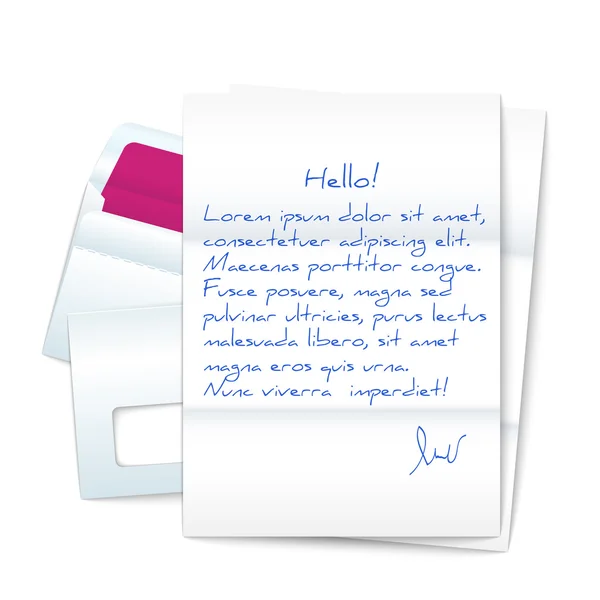 Hello!
Lorem ipsum dolor sit amet,
consectetuer adipiscing elit.
Maecenas porttitor congue.
Fusce posuere, magna sed
pulvinar ultricies, purus lectus
malesuada libero, sit amet
magna eros quis urna.
Nunc viverra imperdiet!